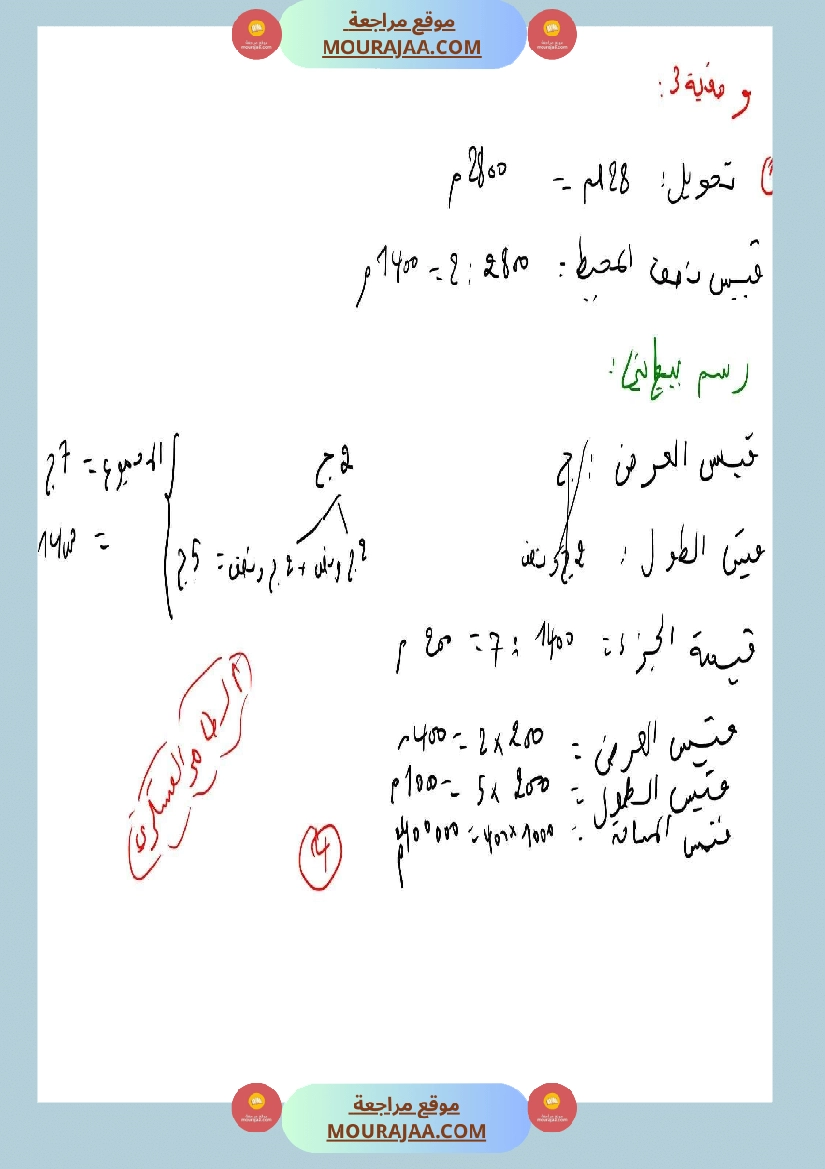 موقع مراجعة
MOURAJAA.COM
وضعية 3:
تحويل: 28 هم = 2800 م
قيس نصف المحيط: 2800 : 2 = 1400 م
رسم بياني:
قيس العرض : ج 2 ج المجموع = 7 ج
قيس الطول : 2 ج و نصف 2 ج ونصف + 2 ج ونصف = 5 ج = 1400
قيمة الجزء = 1400 : 7 = 200 م
قيس العرض = 200 x 2 = 400 م
قيس الطول = 200 x 5 = 100 م
قيس المساحة = 1000 x 400 = 400000 م
4
موقع مراجعة
MOURAJAA.COM